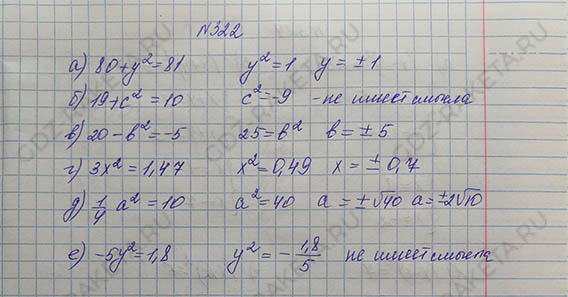 N322
а) 80+y²=81 y²=1 y=±1
б) 19+c²=10 c²=-9 -не имеет смысла
в) 20-b²=-5 25=b² b=±5
г) 3x²=1,47 x²=0,49 x=±0,7
д) 1/4 a²=10 a²=40 a=±√40 a=±2√10
е) -5y²=1,8 y²=-1,8/5 не имеет смысла
GDZ-RAKETA.RU